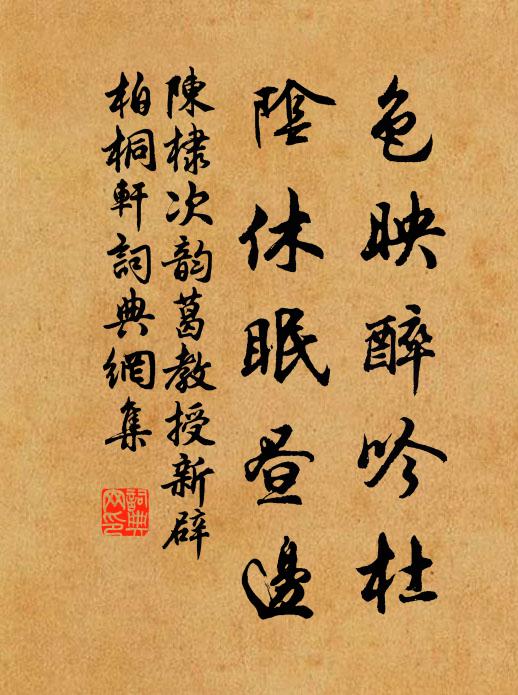 色映醉吟杜
陰休眠晝邊
陳棣次韵葛教授新辟
柏桐軒詞典網集
詞典
网印